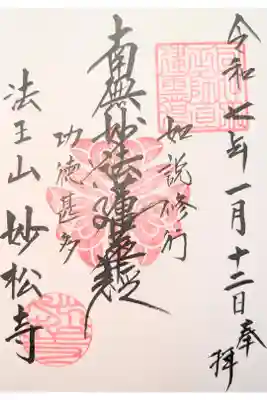 令和七年一月十二日奉拝
如説修行
南無妙法蓮華経
功徳甚多
法王山妙松寺